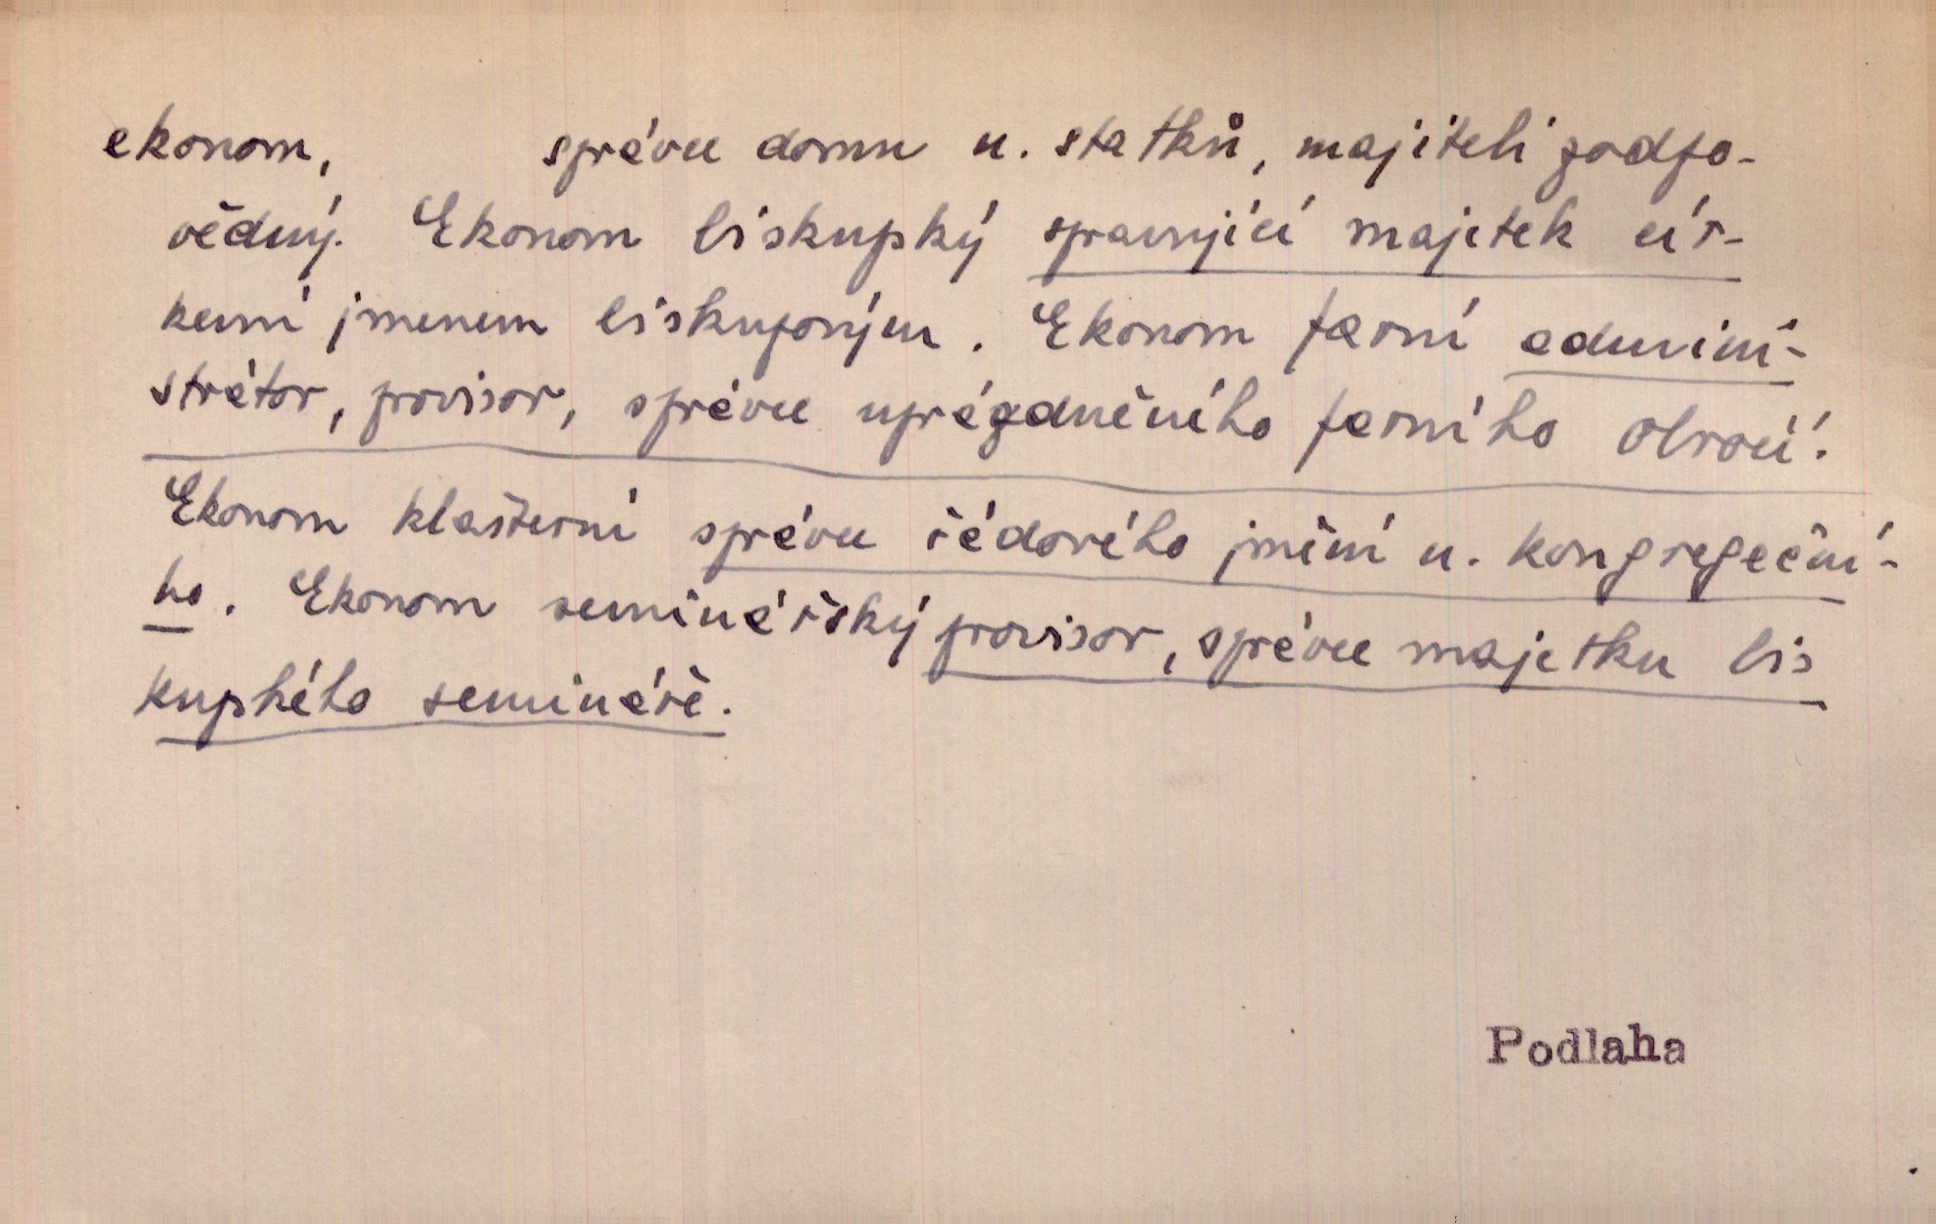 ekonom, správce domu n. statků, majiteli zodpo-
vědný. Ekonom biskupský spravující majetek cír-
kevní jmenem biskupovým. Ekonom farní admini-
strátor, provisor, správce uprázdněného farního obročí.
Ekonom klášterní správce řádového jmění n. kongregační-
ho. Ekonom seminářský provisor, správce majetku bis
kupského semináře.
Podlaha